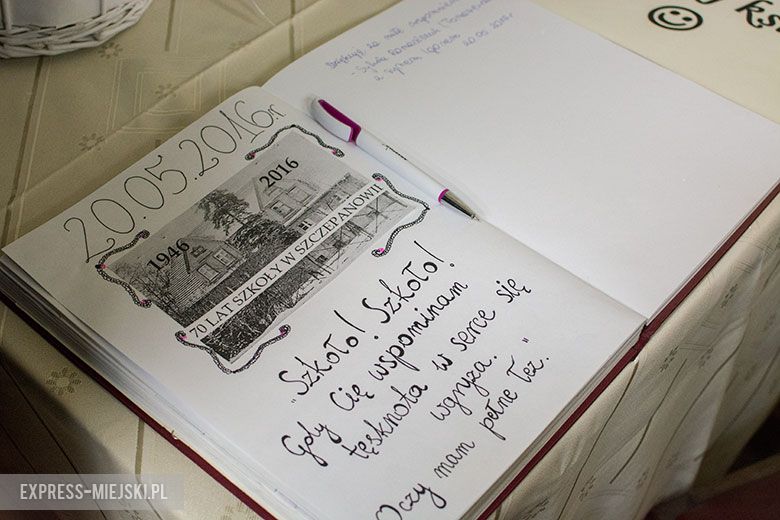 20.05.2016r
1946
2016
70 LAT SZKOŁY W SZCZEPANOWIE
„Szkoło! Szkoło!
Gdy Cię wspominam
tęsknota w serce się
wgryza.
Oczy mam pełne łez."
Dziękuję za miłe
20.05.2016r
EXPRESS-MIEJSKI.PL